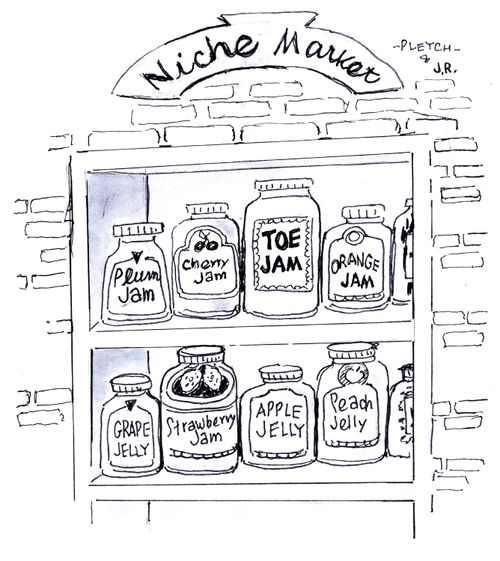 Niche Market
-PLETCH-
& J.R.
Plum
Jam
Cherry
Jam
TOE
JAM
ORANGE
JAM
GRAPE
JELLY
Strawberry
Jam
APPLE
JELLY
Peach
Jelly